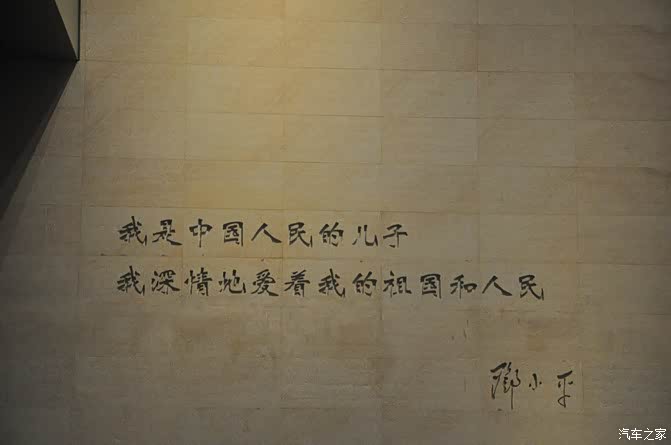 我是中国人民的儿子
我深情地爱着我的祖国和人民
邓小平
汽车之家